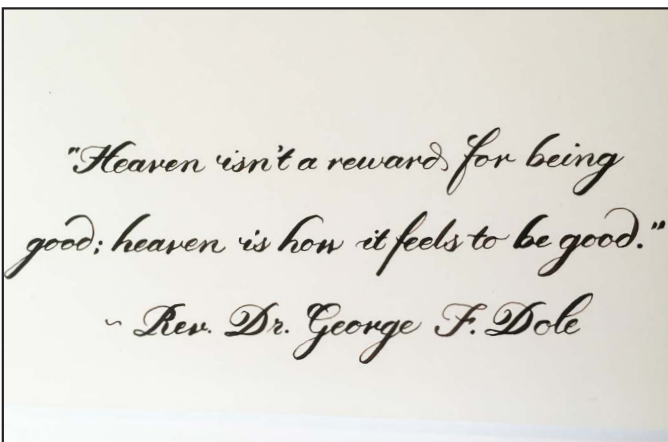 "Heaven isn't a reward for being
good; heaven is how it feels to be good."
~ Rev. Dr. George F. Dole